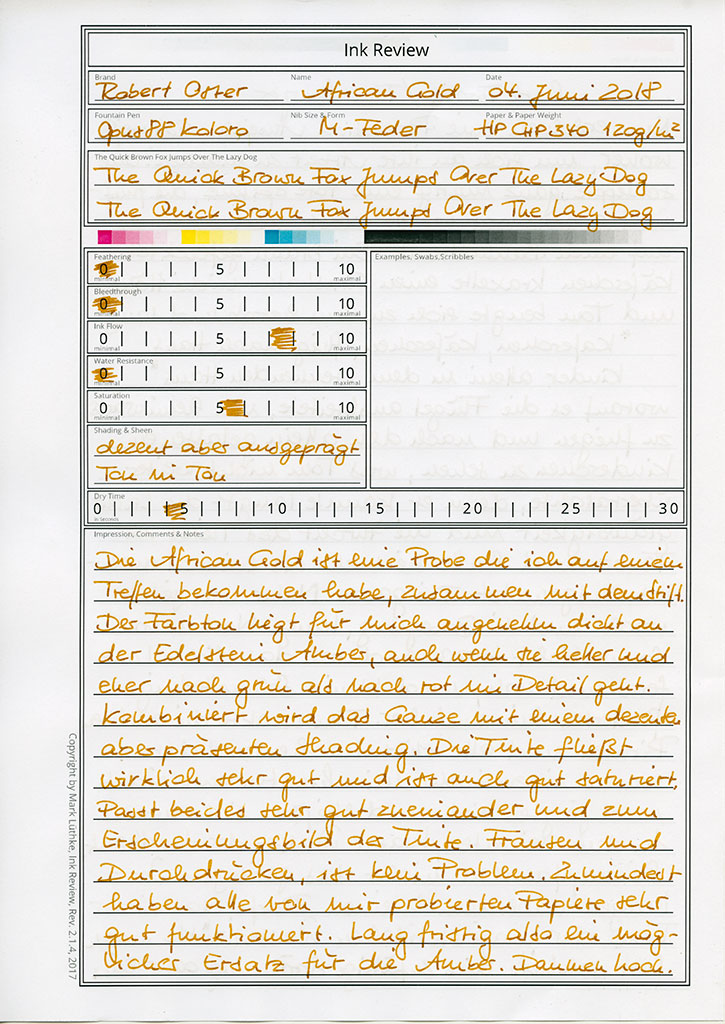 Ink Review
Brand Name Date
Robert Oster African Gold 04. Juni 2018
Fountain Pen Nib Size & Form Paper & Paper Weight
Opus 88 Koloro M-Feder HP CHP340 120g/m²
The Quick Brown Fox Jumps Over The Lazy Dog
The Quick Brown Fox Jumps Over The Lazy Dog
The Quick Brown Fox Jumps Over The Lazy Dog
Feathering
0 | | | | 5 | | | | 10
minimal maximal
Bleedthrough
0 | | | | 5 | | | | 10
minimal maximal
Ink Flow
0 | | | | 5 | | | | 10
minimal maximal
Water Resistance
0 | | | | 5 | | | | 10
minimal maximal
Saturation
0 | | | | 5 | | | | 10
minimal maximal
Shading & Sheen
dezent aber ausgeprägt
Ton in Ton
Examples, Swabs, Scribbles
Dry Time
0 | | | | 5 | | | | 10 | | | | 15 | | | | 20 | | | | 25 | | | | 30
in Seconds
Impression, Comments & Notes
Die African Gold ist eine Probe die ich auf einem
Treffen bekommen habe, zusammen mit dem Stift.
Der Farbton liegt für mich angenehm dicht an
der Edelstein Amber, auch wenn sie heller und
eher nach grün als nach rot im Detail geht.
Kombiniert wird das Ganze mit einem dezenten
aber präsenten Shading. Die Tinte fließt
wirklich sehr gut und ist auch gut saturiert.
Passt beides sehr gut zueinander und zum
Erscheinungsbild der Tinte. Fransen und
Durchdrücken, ist kein Problem. Zumindest
haben alle von mir probierten Papiere sehr
gut funktioniert. Lang fristig also ein mög-
licher Ersatz für die Amber. Daumen hoch.
Copyright by Mark Lüthke, Ink Review, Rev. 2.1.4, 2017